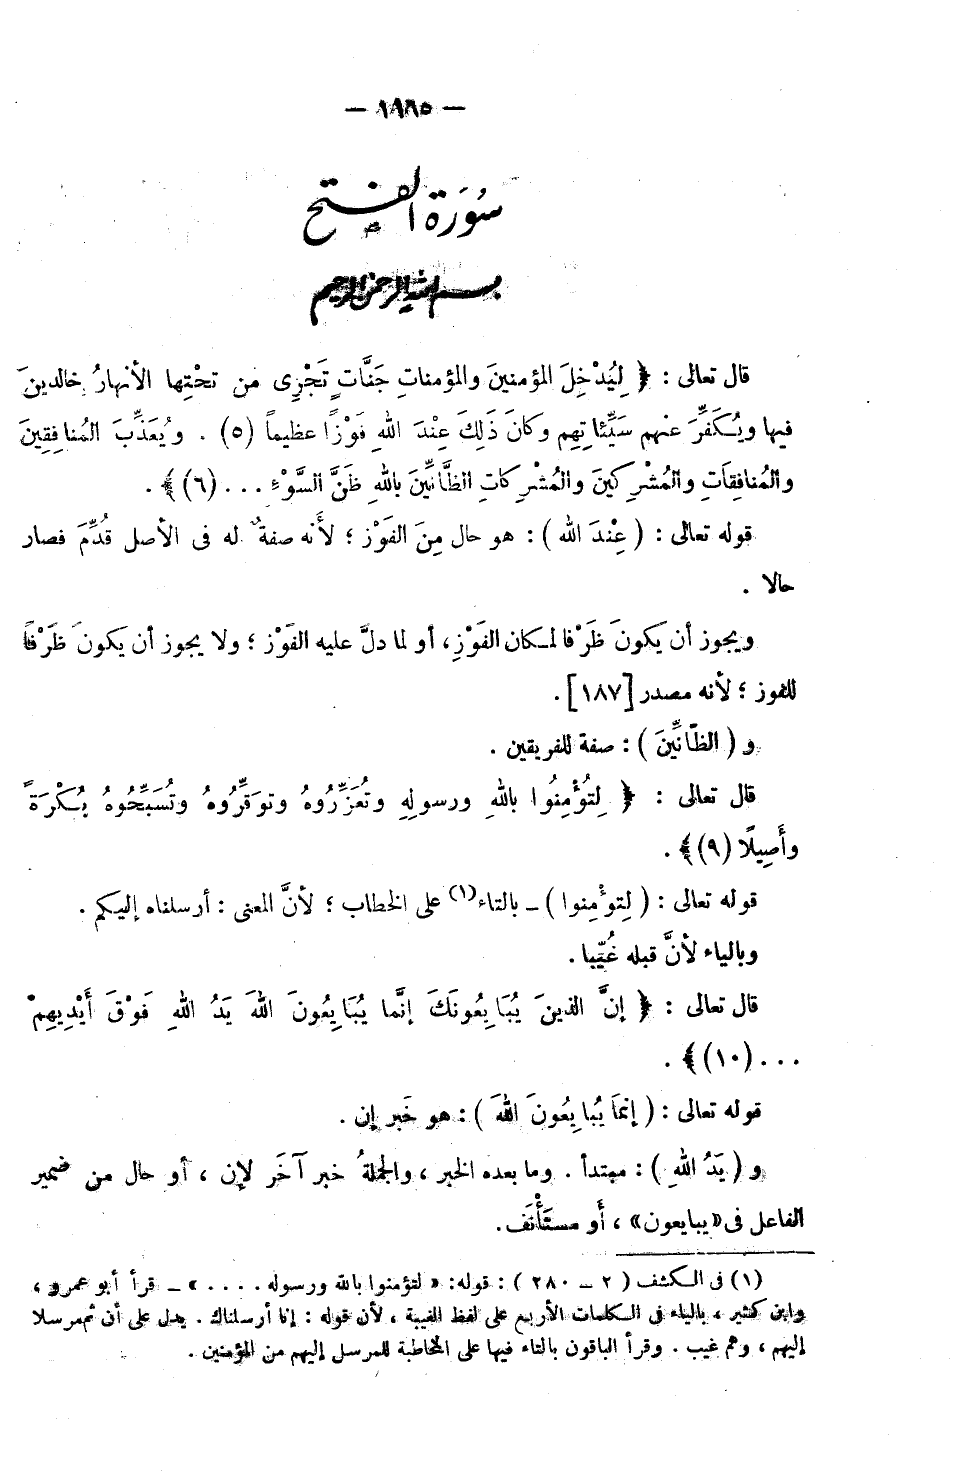 سورة الفتح
بسم الله الرحمن الرحيم
قال تعالى : ﴿ لِيُدْخِلَ المؤمنينَ والمؤمناتِ جَنَّاتٍ تَجْرِى من تحْتِها الأنهارُ خالدينَ
فيها ويُكَفِّرَ عنهم سَيِّئاتِهِم وكانَ ذَلِكَ عِنْدَ اللهِ فَوْزًا عظيماً (٥) . ويُعَذِّبَ المُنافِقِينَ
والمُنافِقَاتِ والمُشْرِكينَ والمُشْرِكاتِ الظَّانِّينَ بِاللهِ ظَنَّ السَّوْءِ ... (٦)﴾ .
قوله تعالى : ( عِنْدَ الله ) : هو حال مِنَ الفَوْز ؛ لأَنه صفةٌ له فى الأصل قُدِّمَ فصار
حالا .
ويجوز أن يكونَ ظَرْفا لمكان الفَوْزِ، أو لما دلَّ عليه الفَوْز ؛ ولا يجوز أن يكونَ ظَرْفاً
للفوز ؛ لأنه مصدر [١٨٧] .
و ( الظَّانِّينَ ) : صفة للفريقين .
قال تعالى : ﴿ لِتُؤْمِنُوا بِاللهِ ورسولِهِ وتُعَزِّرُوهُ وتوَقِّرُوهُ وتُسَبِّحُوهُ بُكْرَةً
وأَصِيلًا (٩)﴾ .
قوله تعالى : ( لِتؤْمِنوا ) ــ بالتاء(١) على الخطاب ؛ لأنَّ المعنى : أرسلناه إليكم .
وبالياء لأنَّ قبله غُيَّبا .
قال تعالى : ﴿ إنَّ الذينَ يُبَايِعُونَكَ إنَّما يُبَايِعُونَ اللهَ يَدُ اللهِ فَوْقَ أَيْدِيهِمْ
... (١٠)﴾ .
قوله تعالى : ( إنمَا يُبايِعُونَ اللهَ ) : هو خَبر إن .
و ( يَدُ اللهِ ) : مبتدأ . وما بعده الخبر ، والجملةُ خبر آخَر لإن ، أو حال من ضمير
الفاعل فى «يبايعون» ، أَو مستَأْنَف .
(١) فى الكشف ( ٢ ــ ٢٨٠ ) : قوله: « لتؤمنوا بالله ورسوله .... » ــ قرأ أبو عمرو ،
وابن كثير ، بالياء فى الكلمات الأربع على لفظ الغيبة ، لأن قوله : إنا أرسلناك . يدل على أن ثم مرسلا
إليهم ، وهم غيب . وقرأ الباقون بالتاء فيها على المخاطبة للمرسل إليهم من المؤمنين .